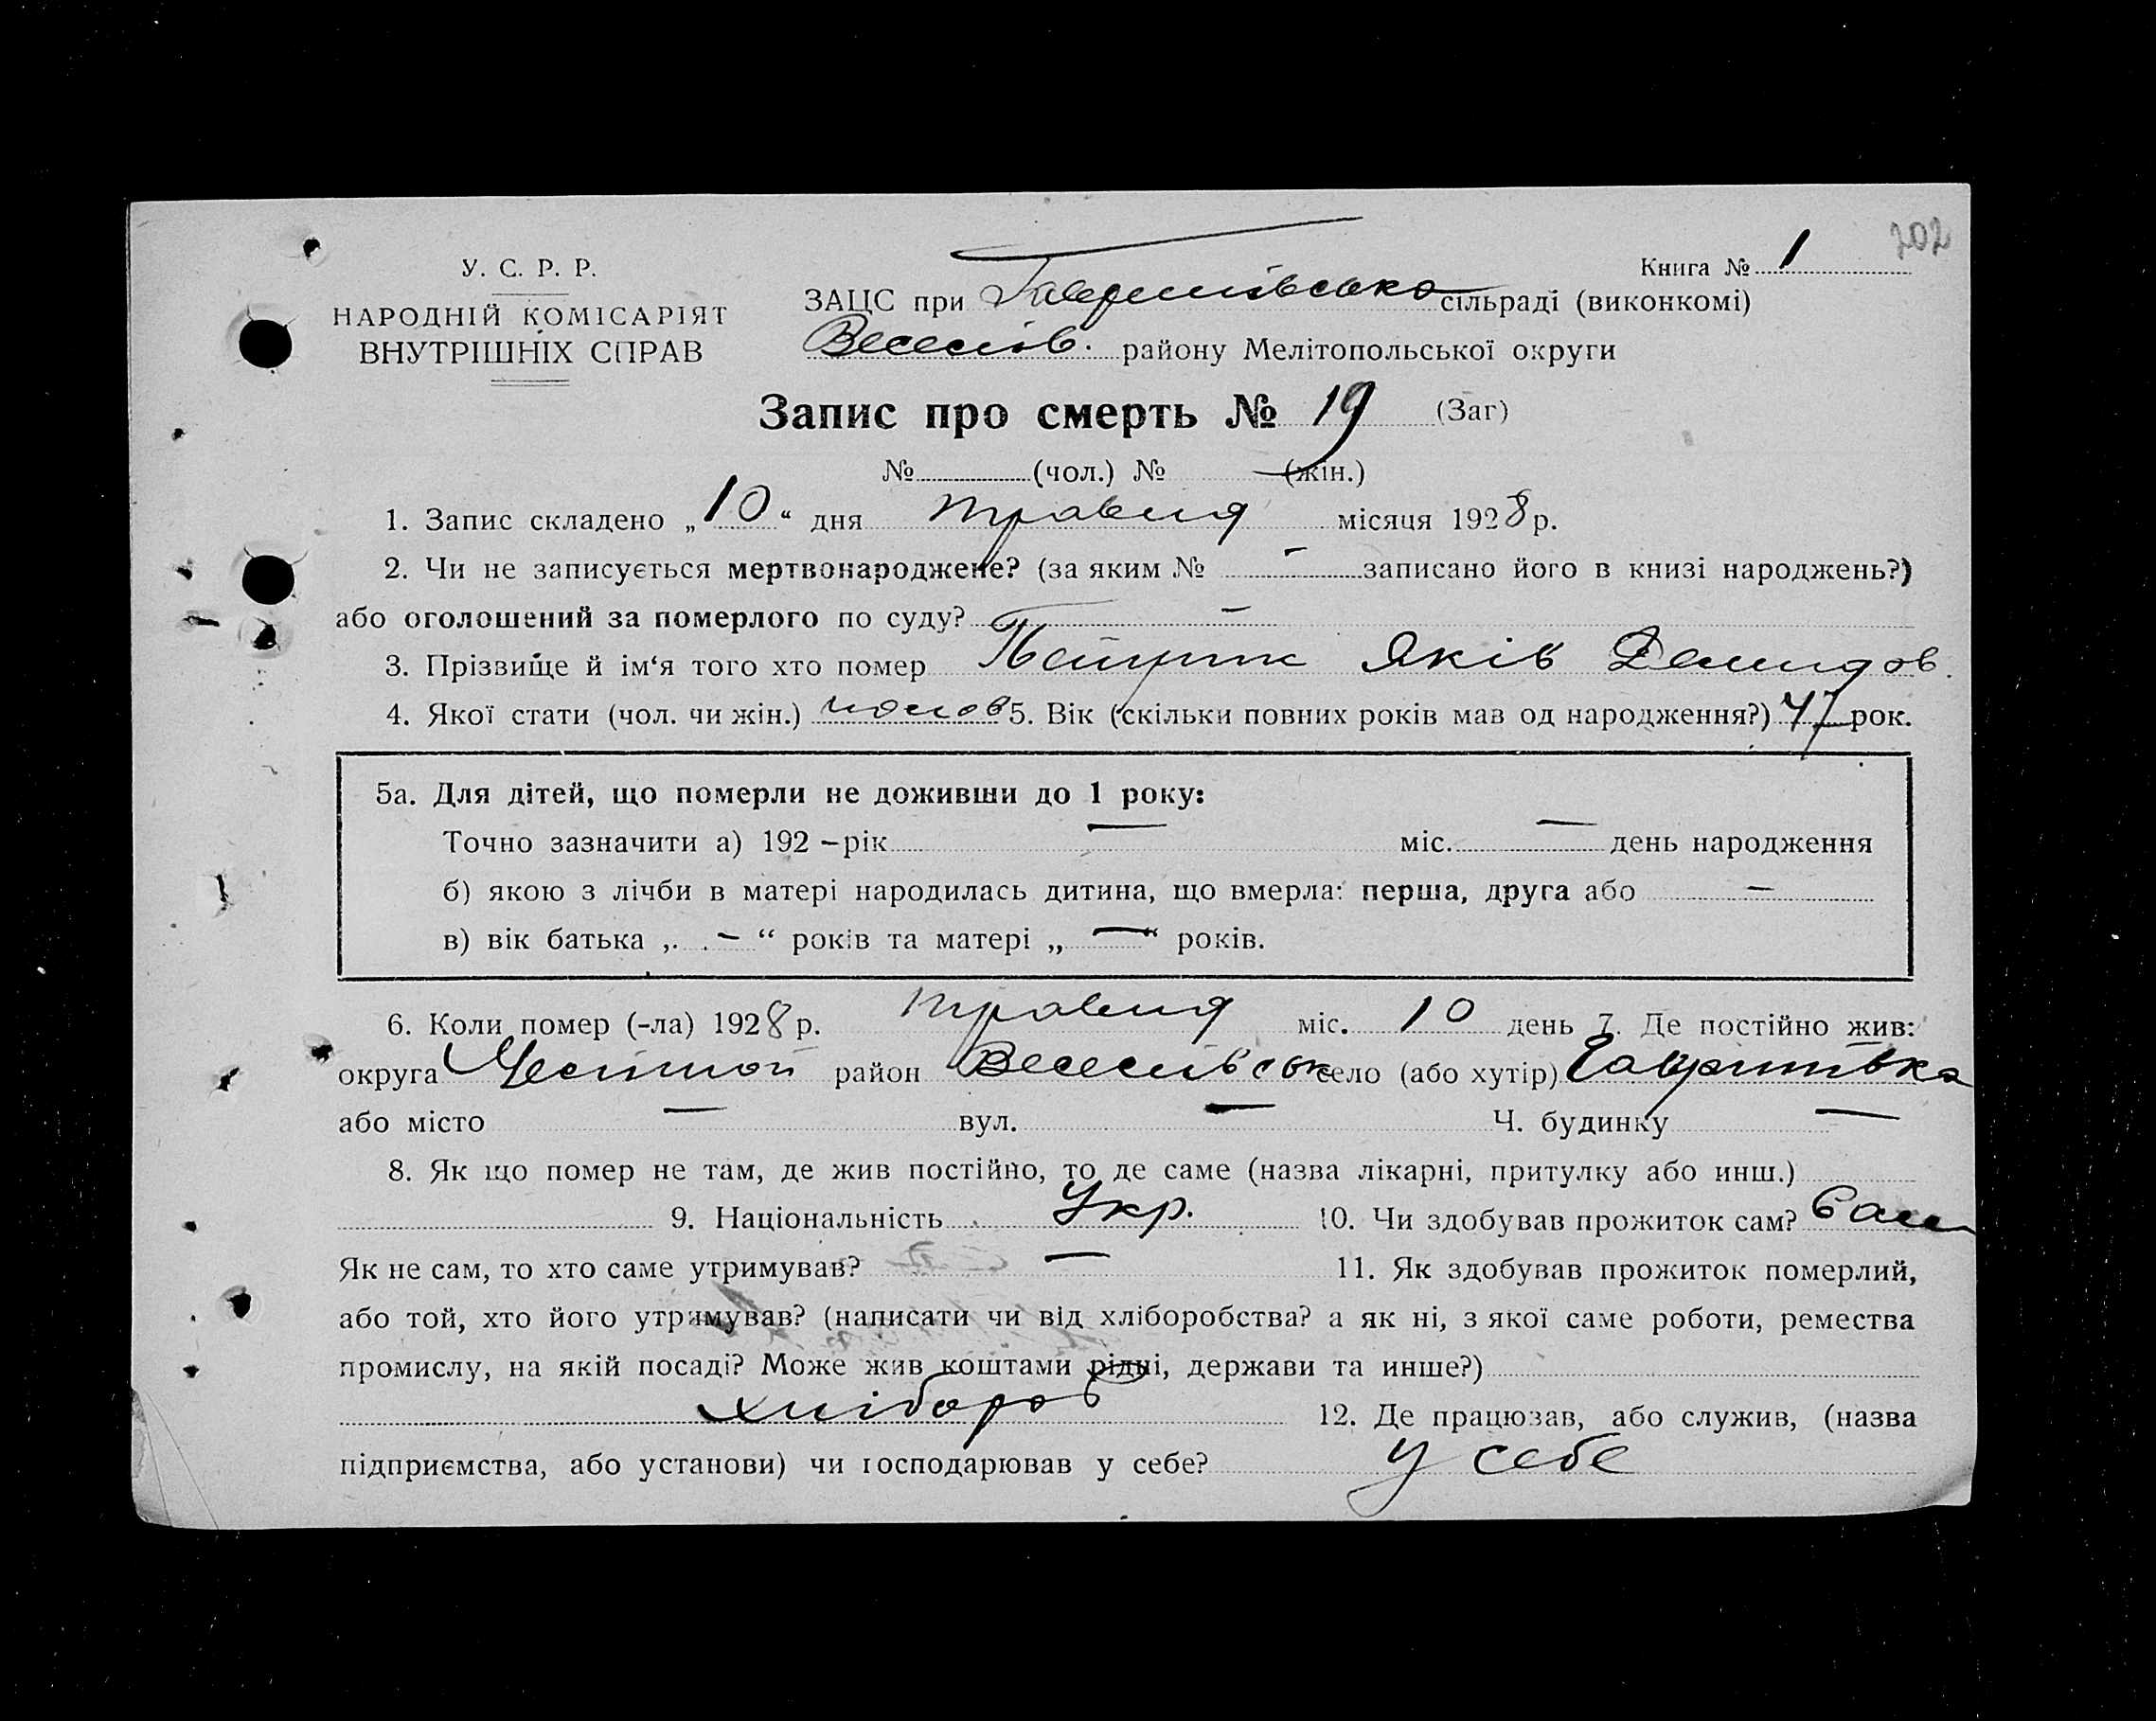 202
У. С. Р. Р.
Книга № 1
НАРОДНІЙ КОМІСАРІЯТ
ВНУТРІШНІХ СПРАВ
ЗАЦС при сільраді (виконкомі)
Веселів. району Мелітопольської округи
Запис про смерть № 19 (Заг)
№ (чол.) № (жін.)
1. Запис складено „10“ дня травня місяця 1928 р.
2. Чи не записується мертвонароджене? (за яким № – записано його в книзі народжень?)
або оголошений за померлого по суду? –
3. Прізвище й ім‘я того хто помер Яків Демидов.
4. Якої стати (чол. чи жін.) чолов 5. Вік (скільки повних років мав од народження?) 47 рок.
5а. Для дітей, що померли не доживши до 1 року:
Точно зазначити а) 192 – рік — міс. — день народження
б) якою з лічби в матері народилась дитина, що вмерла: перша, друга або —
в) вік батька „ – “ років та матері „ — “ років.
6. Коли помер (-ла) 1928 р. травня міс. 10 день 7. Де постійно жив:
округа район Веселівськ село (або хутір) Гаврилівка
або місто — вул. — Ч. будинку —
8. Як що помер не там, де жив постійно, то де саме (назва лікарні, притулку або инш.)
9. Національність Укр. 10. Чи здобував прожиток сам? Сам
Як не сам, то хто саме утримував? — 11. Як здобував прожиток померлий,
або той, хто його утримував? (написати чи від хліборобства? а як ні, з якої саме роботи, ремества
промислу, на якій посаді? Може жив коштами рідні, держави та инше?)
хлібороб 12. Де працював, або служив, (назва
підприємства, або установи) чи господарював у себе? у себе